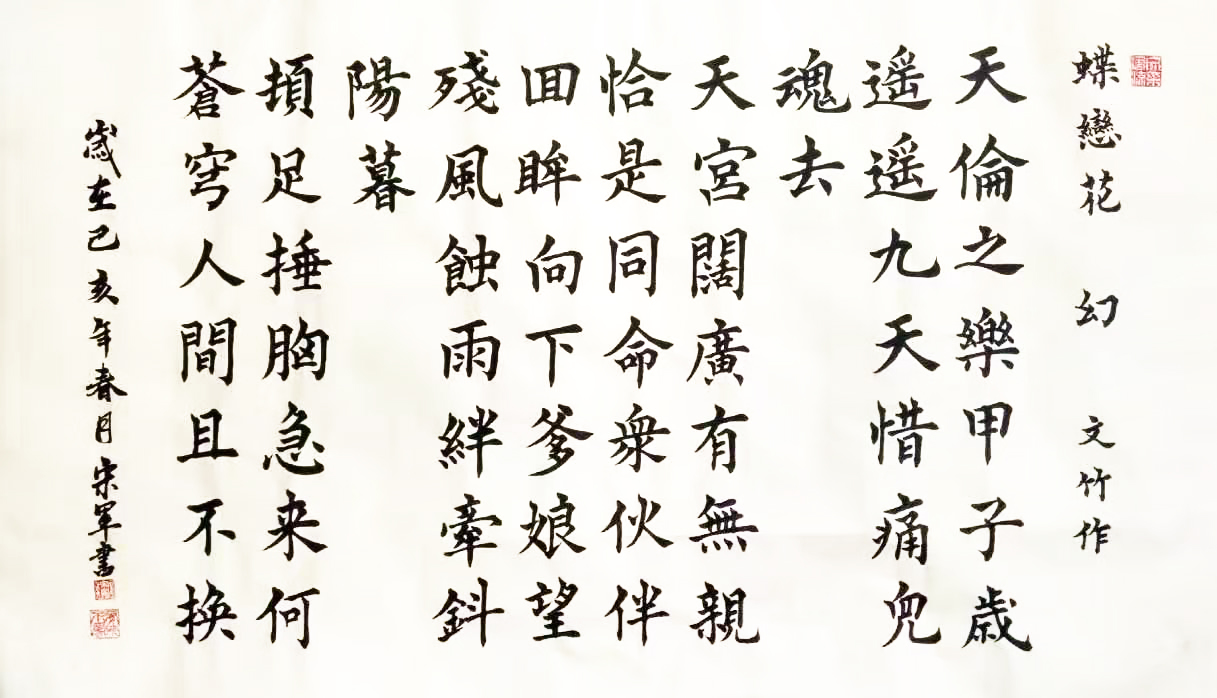 蝶戀花 幻 文竹作
天倫之樂甲子歲
遥遥九天惜痛兜
魂去
天宮闊廣有無親
恰是同命衆伙伴
回眸向下爹娘望
殘風蝕雨絆牽斜
陽暮
頓足捶胸急来何
蒼穹人間且不換
歲在己亥年春月宋軍書